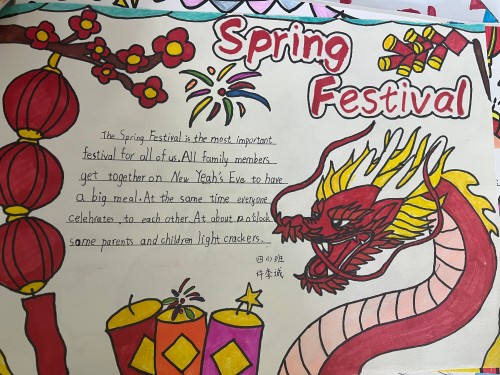 Spring
Festival
The Spring Festival is the most important
festival for all of us. All family members
get together on New Yeah's Eve to have
a big meal. At the same time everyone
celebrates to each other. At about
some parents and children light crackers.